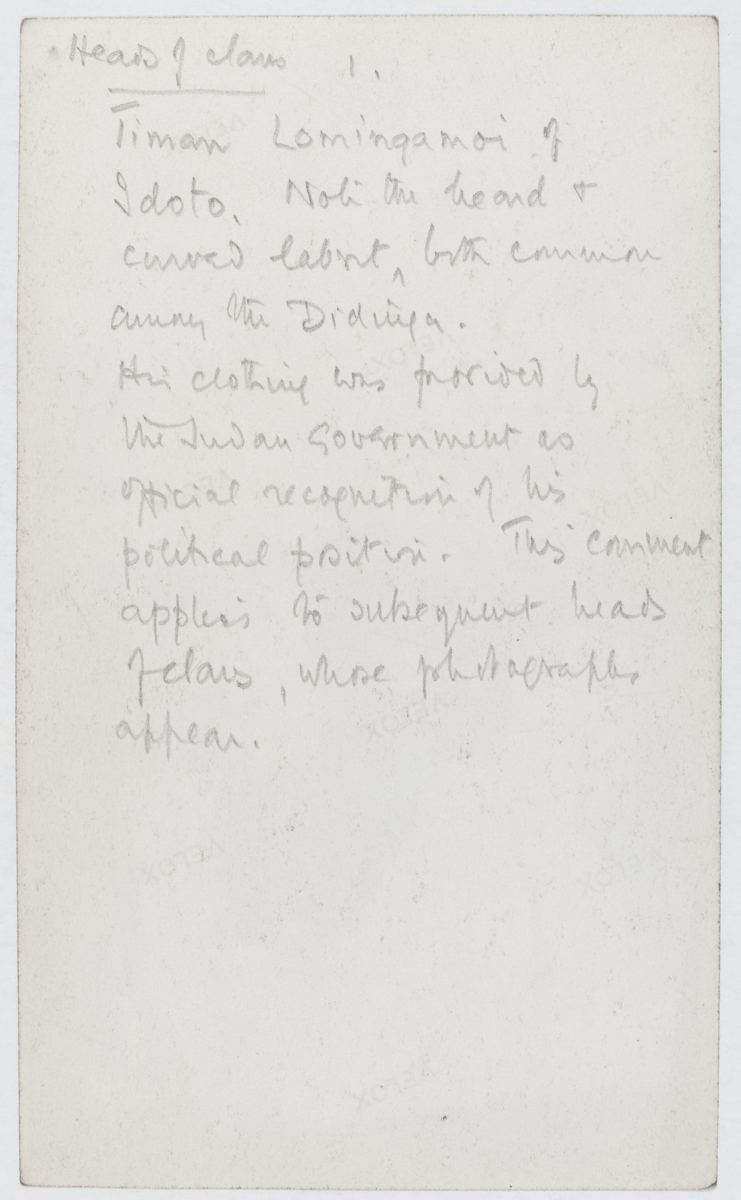 Heads of clans 1.
Timan Lomingamoi of
Idoto. Note the beard +
curved labret, both common
among the Didinga.
His clothing was provided by
the Sudan Government as
official recognition of his
political position. This comment
applies to subsequent heads
of clans, whose photographs
appear.
VELOX
VELOX
VELOX
VELOX
VELOX